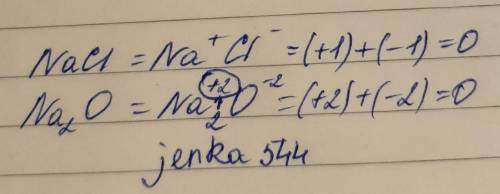 NaCl = Na⁺Cl⁻ = (+1) + (-1) = 0
Na₂O = Na₂⁺²O⁻² = (+2) + (-2) = 0
jenka 544